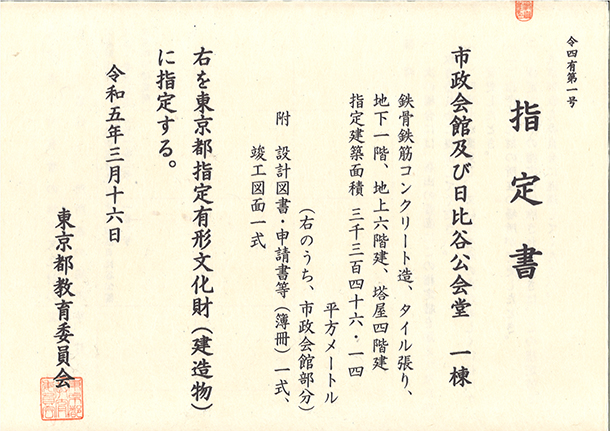 令四有第一号
指定書
市政会館及び日比谷公会堂 一棟
鉄骨鉄筋コンクリート造、タイル張り、
地下一階、地上六階建、塔屋四階建
指定建築面積 三千三百四十六・一四
平方メートル
(右のうち、市政会館部分)
附 設計図書・申請書等(簿冊)一式、
竣工図面一式
右を東京都指定有形文化財(建造物)
に指定する。
令和五年三月十六日
東京都教育委員会